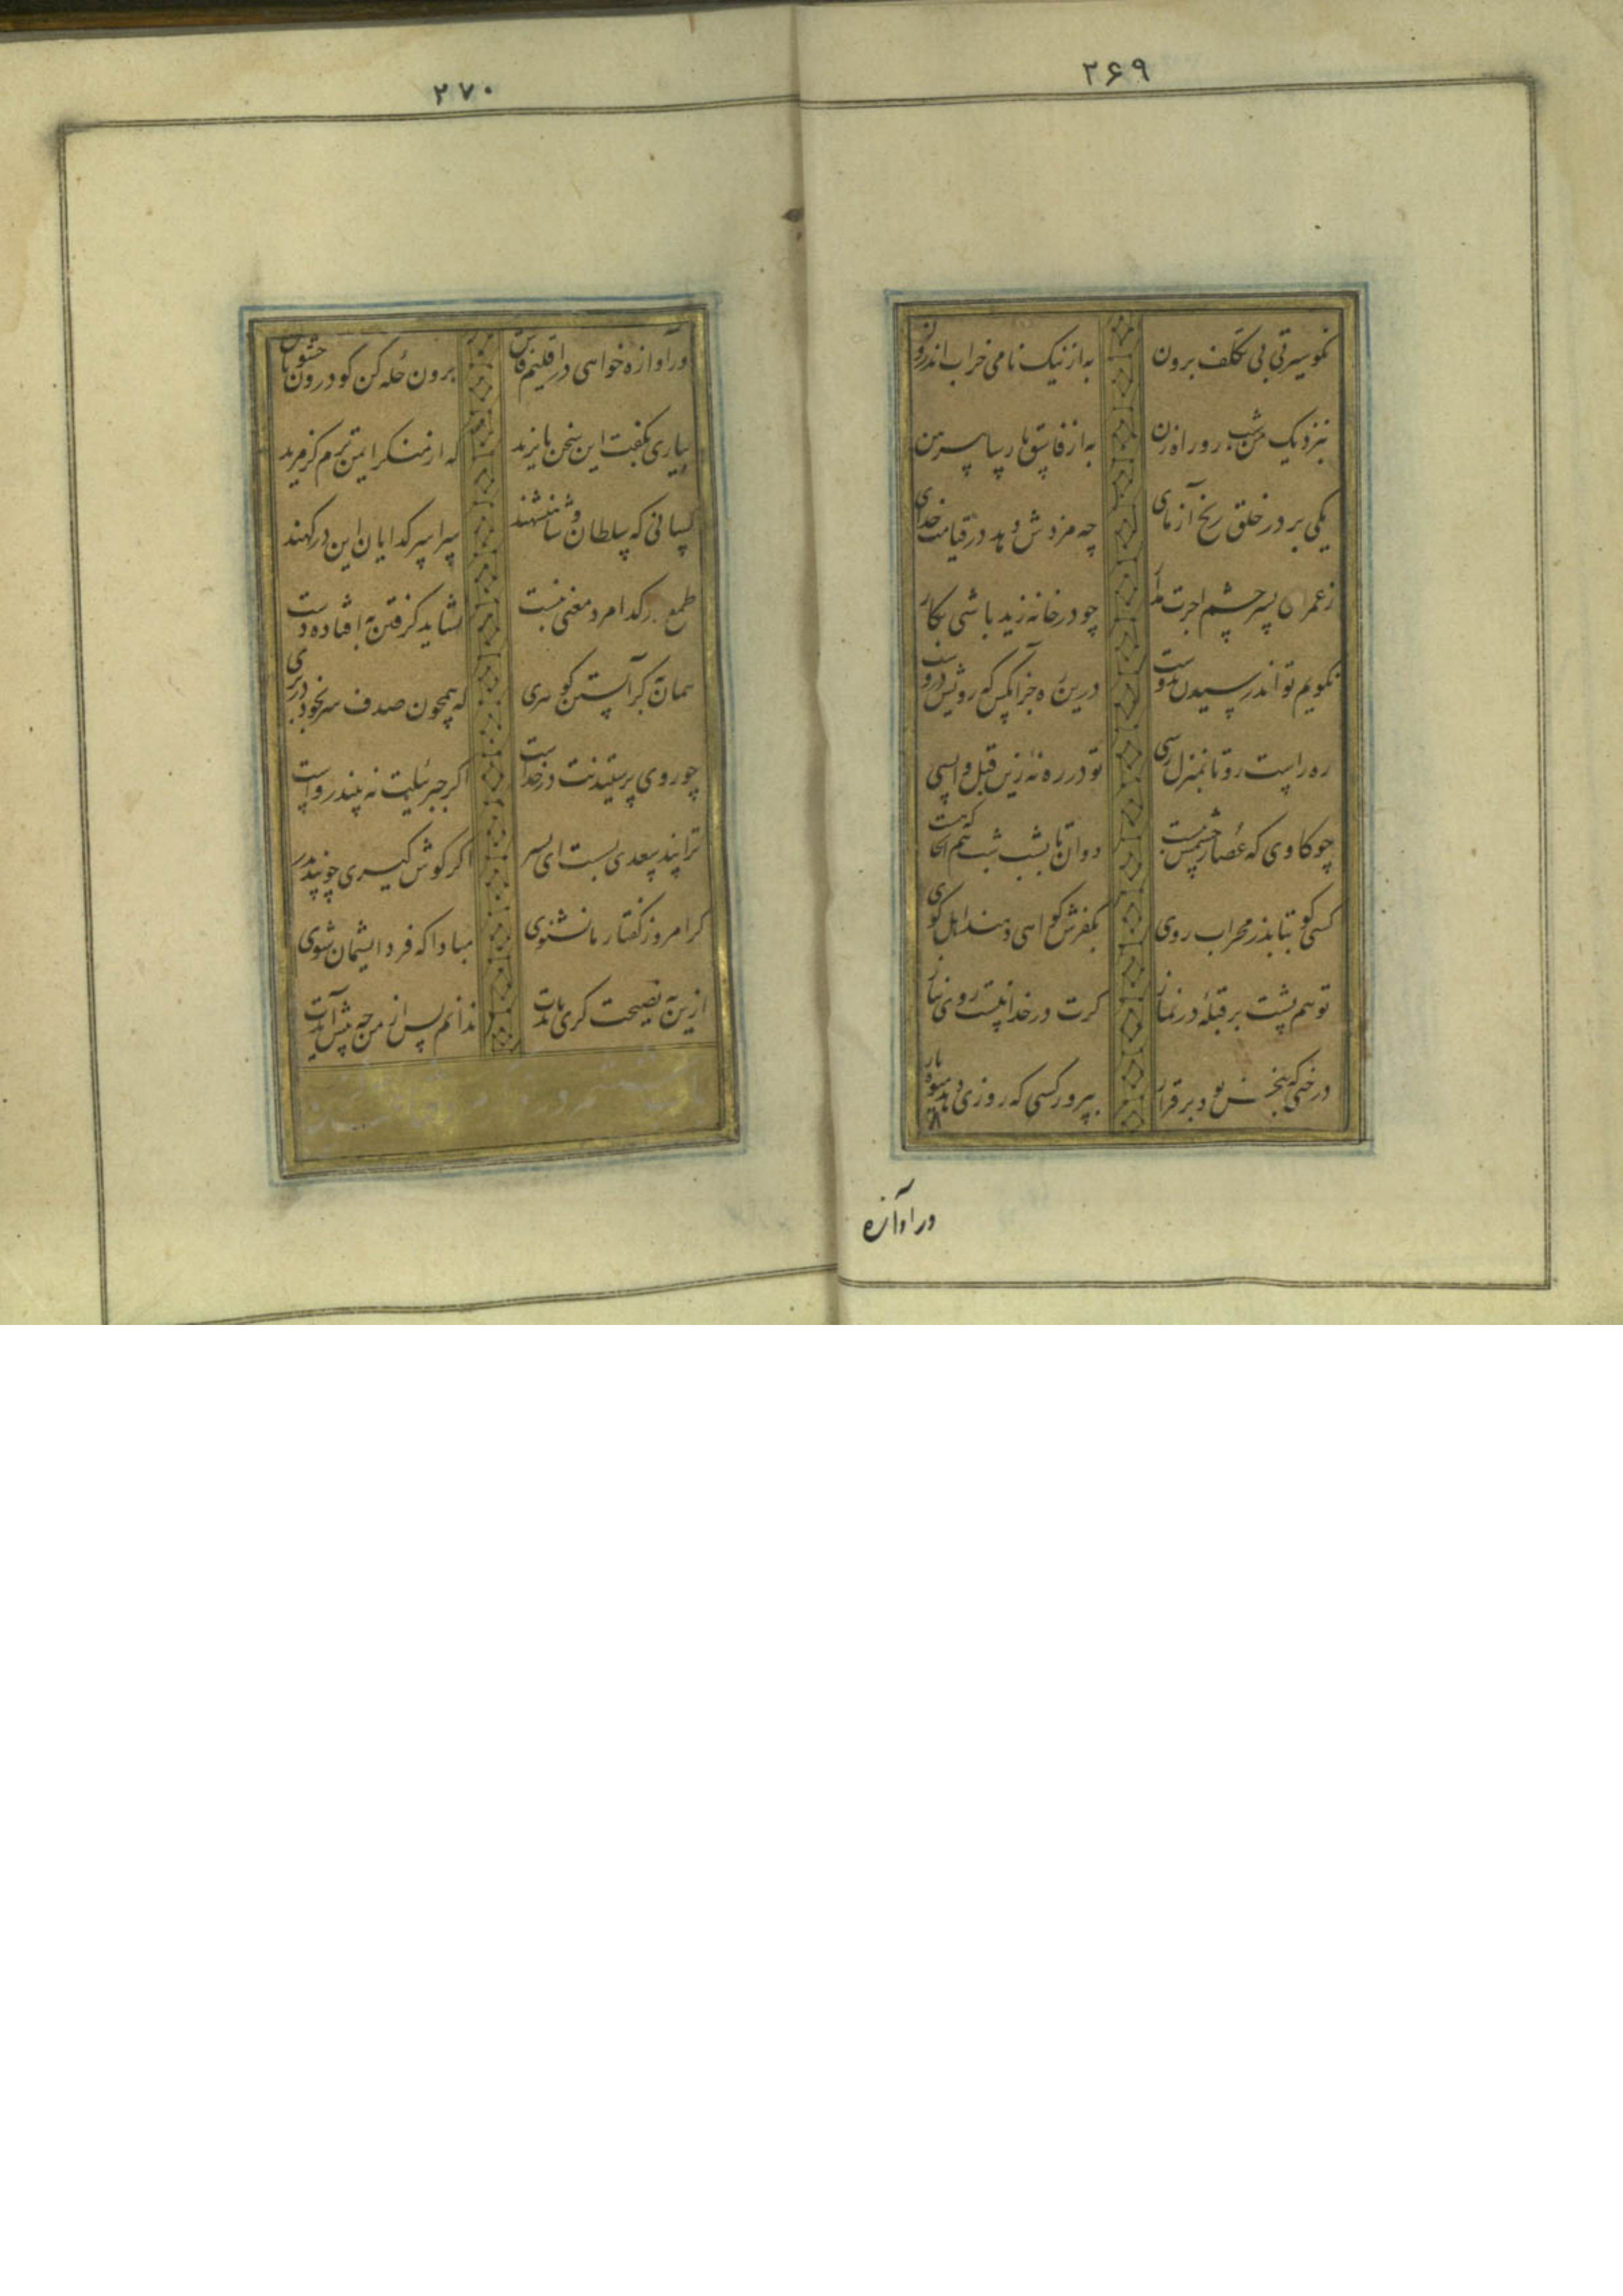 ۲۶۹
نکوسیرتی بی تکلف برون به از نیک نامی خراب اندرون
بنزدیک من شب رو راه زن به از فاسق پارسا پیرهن
یکی بر در خلق رنج آزمای چه مزدش دهد در قیامت خدای
ز عمر ان پسر چشم اجرت مدار چو در خانه زید باشی بکار
نکویم تواند رسیدن بدوست درین ره جز آنکس که رویش دروست
ره راست رو تا بمنزل رسی تو در ره نهٔ زین قبل واپسی
چو کاوی که عصار چشمش ببست دوان تا بشب شب هم انجا که هست
کسی کو بتابد ز محراب روی بکفرش کواهی دهند اهل کوی
تو هم پشت بر قبلهٔ در نماز کرت در خدا نیست روی نیاز
درختی که بیخش بود برقرار بپرور کسی که روزی دهد میوه بار
ور آوازه
۲۷۰
ور آوازه خواهی در اقلیم فاش برون حله کن کو درون حشو باش
بیاری بکفت این سخن بایزید که از منکر ایمن ترم کز مرید
کسانی که سلطان و شاهنشهند سراسر کدایان این درکهند
طمع در کدا مرد معنی نبست نشاید کرفتن به افتاده دست
همان به کر آبستن کوهری که همچون صدف سر بخود در بری
چو روی پرستیدنت در خداست اکر جبرئیلت نه بیند رواست
ترا پند سعدی بست ای پسر اکر کوش کیری چو پند پدر
کر امروز کفتار ما نشنوی مبادا که فردا پشیمان شوی
ازین به نصیحت کری بایدت ندانم پس از من چه پیش آیدت